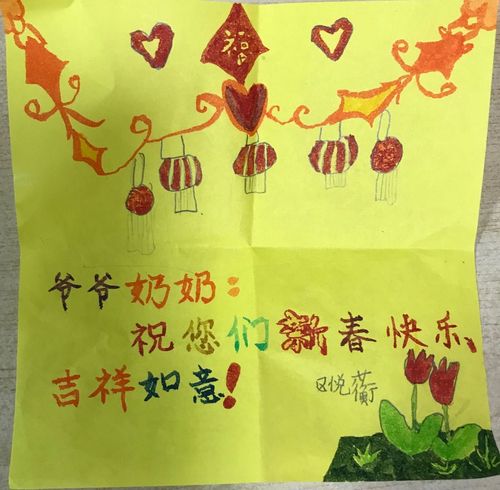 福
爷爷奶奶：
祝您们新春快乐、
吉祥如意！
区悦蘅